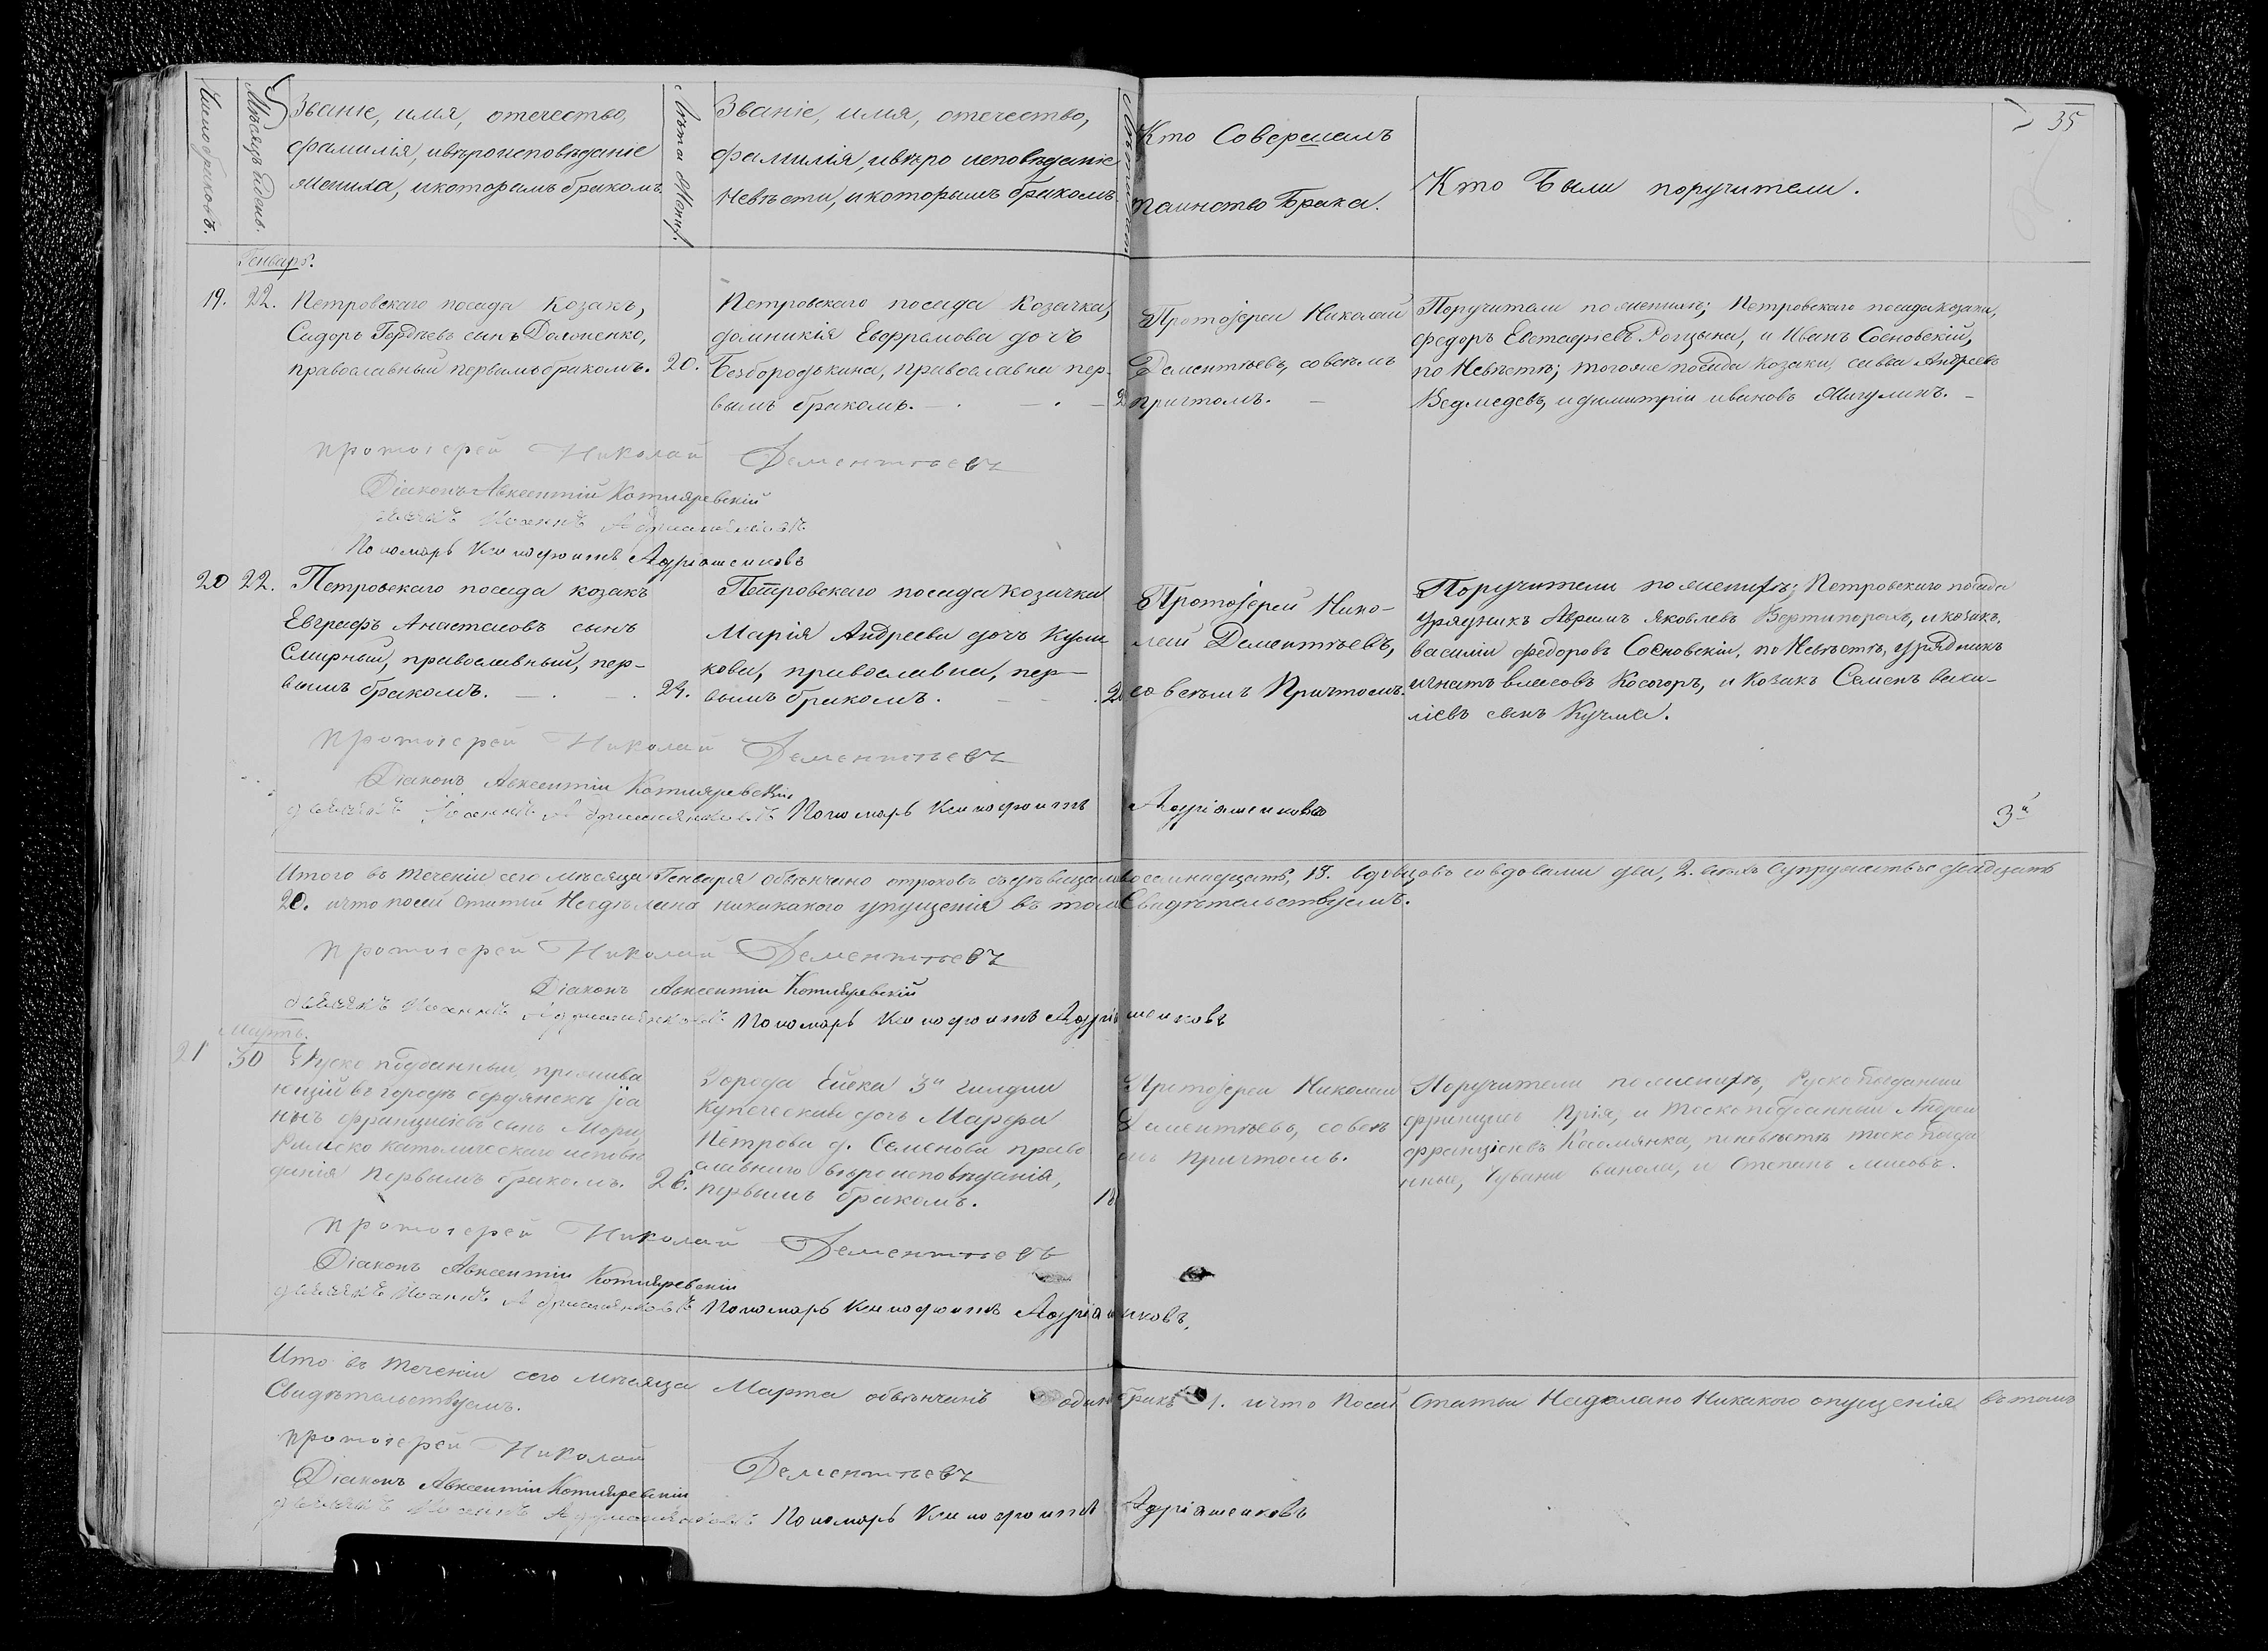 35
Число браковъ.
Мѣсяцъ и день.
Званіе, имя, отечество,
фамилія, и вѣроисповѣданіе
жениха, и которымъ бракомъ.
Лѣта Жених.
Званіе, имя, отечество,
фамилія, и вѣро исповѣданіе
Невѣсты, и которымъ бракомъ
Кто Совершалъ
таинство Брака.
Кто Были поручители.
Генварь.
19. 22.
Петровскаго посада Козакъ,
Сидоръ Гордѣевъ сынъ Долопенко,
православный первымъ бракомъ. 20.
Петровскаго посада Козачка,
домникія Евфрамова дочь
Безбородькина, православна пер-
вымъ бракомъ.
Протоіерей Николай
Дементьевъ, со всѣмъ
причтомъ.
Поручители по женихѣ; Петровскаго посада козаки,
федоръ Евстафіевъ, и Иванъ Сосновскій,
по Невѣстѣ; тогоже посада козаки, савва Андреевъ
Ведмедевъ, и димитрій ивановъ Мигулинъ.
протоіерей Николай Дементьевъ
Діаконъ Авксентій Котляревскій
дьячекъ Іоаннъ Адріашенковъ
Пономарь Ксенофонтъ Адріашенковъ
20 22.
Петровскаго посада козакъ
Евграфъ Анастасовъ сынъ
Смирный, православный, пер-
вымъ бракомъ. 24.
Петровскаго посада козачка
Марія Андреева дочь Кули
кова, православна, пер-
вымъ бракомъ.
Протоіерей Нико-
лай Дементьевъ,
со всѣмъ Причтомъ.
Поручители по женихѣ; Петровскаго посада
урядникъ Аврамъ Яковлевъ Вертипорохъ, и козакъ,
василій федоровъ Сосновскій, по Невѣстѣ, урядникъ
игнатъ власовъ Косогоръ, и Козакъ Семенъ васи-
ліевъ сынъ Кучма.
протоіерей Николай Дементьевъ
Діаконъ Авксентій Котляревскій
дьячекъ Іоаннъ Адріашенковъ Пономарь Ксенофонтъ Адріашенковъ
3й
Итого въ теченіи сего мѣсяца Генваря обвѣнчано отроковъ съ дѣвицами восемнадцать, 18. вдовцовъ со вдовами два, 2. всѣхъ супружествъ двадцать
20. и что по сей статьи Несдѣлано никакакого упущенія въ томъ Свидѣтельствуемъ.
протоіерей Николай Дементьевъ
Діаконъ Авксентій Котляревскій
дьячекъ Іоаннъ Адріашенковъ Пономарь Ксенофонтъ Адріашенковъ
Мартъ.
21 30
подданный, прожива
ющій въ городѣ бердянскѣ
францисковъ сынъ Мори,
Римско католическаго исповѣ
данія первымъ бракомъ. 26.
Города Ейска 3й гилдіи
купеческая дочь Марфа
Петрова д. Семенова право
славнаго вѣроисповѣданія,
первымъ бракомъ. 18
Протоіерей Николай
Дементьевъ, со всѣ
мъ причтомъ.
Поручители по женихѣ,
и подданный Андрей
францісковъ, по невѣстѣ
и Степанъ
протоіерей Николай Дементьевъ
Діаконъ Авксентій Котляревскій
дьячекъ Іоаннъ Адріашенковъ Пономарь Ксенофонтъ Адріашенковъ,
Итого въ теченіи сего мѣсяца Марта обвѣнчанъ одинъ бракъ 1. и что Посей Статьи Несделано Никакого опущенія въ томъ
Свидѣтельствуемъ.
протоіерей Николай Дементьевъ
Діаконъ Авксентій Котляревскій
дьячекъ Іоаннъ Адріашенковъ Пономарь Ксенофонтъ Адріашенковъ